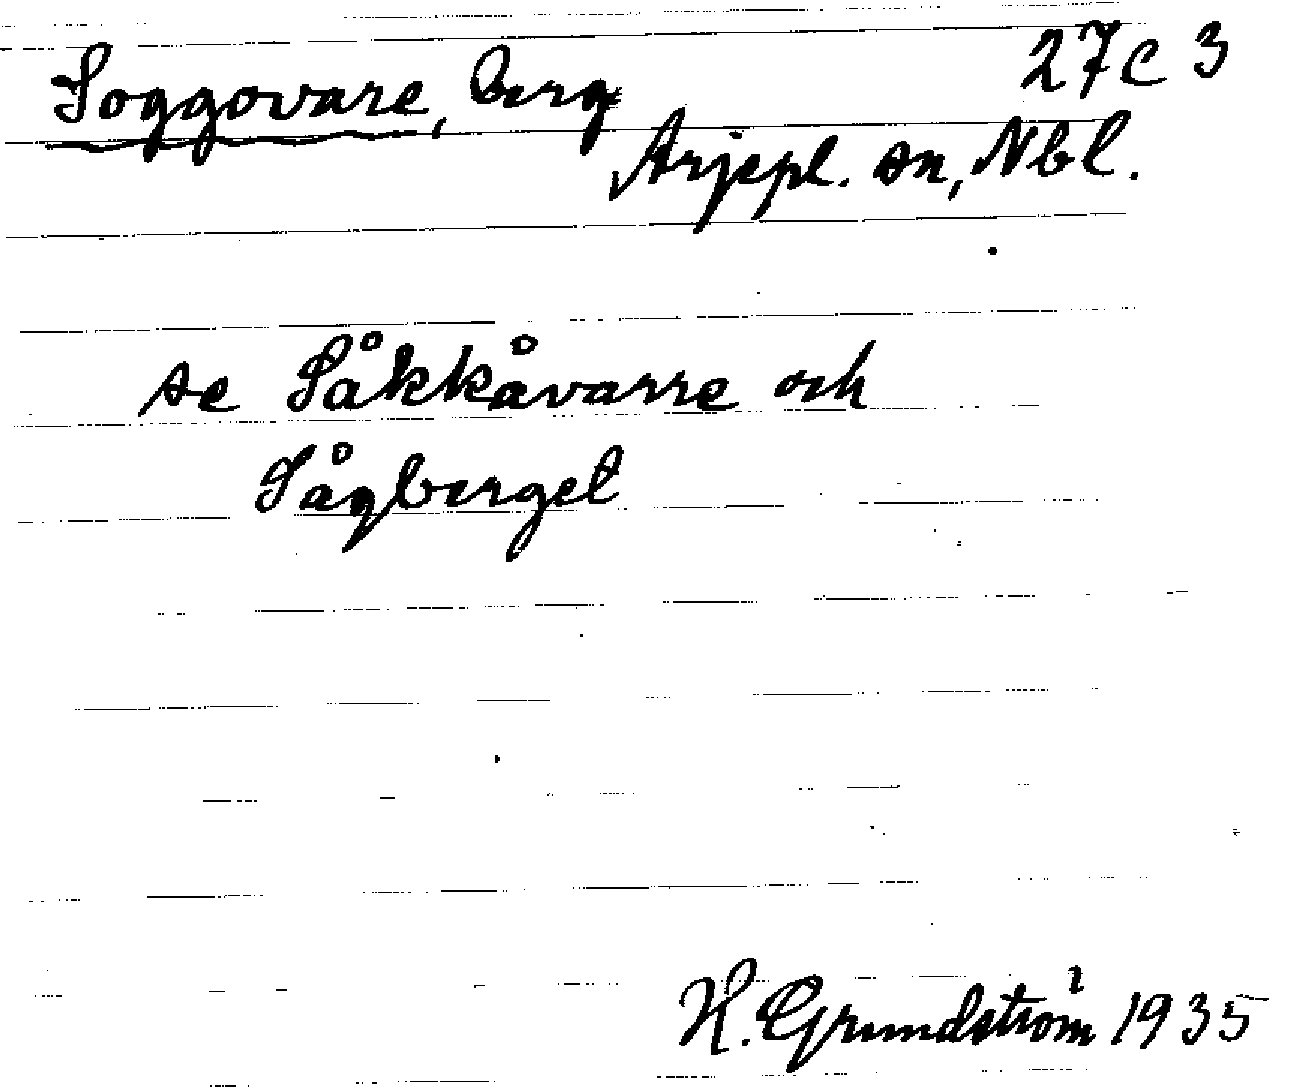 Soggovare, berg 27c 3
Arjepl. sn, Nbl.
se Såkkåvarre och
Sågberget
H. Grundström 1935